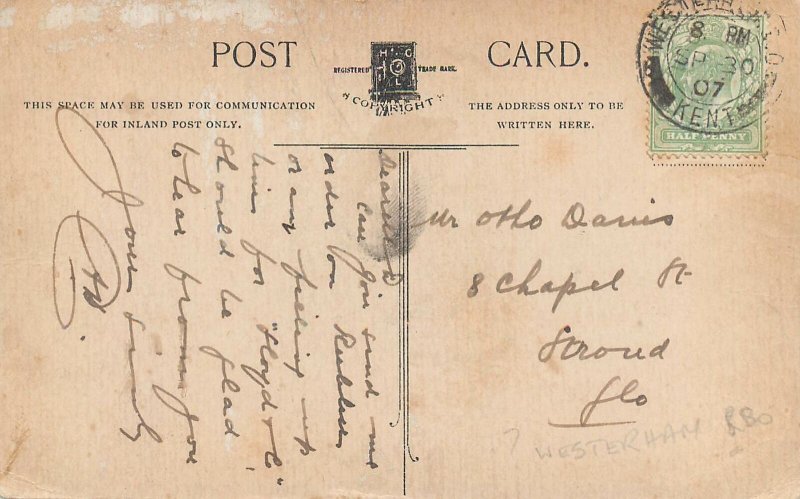 POST CARD.
H.G.L.
REGISTERED TRADE MARK.
COPYRIGHT
THIS SPACE MAY BE USED FOR COMMUNICATION
FOR INLAND POST ONLY.
THE ADDRESS ONLY TO BE
WRITTEN HERE.
WESTERHAM
8 PM
SP 30
07
KENT
HALF PENNY
Can you send me
order on
or any filling up
lines for "Lloyd & Co"
Should be glad
to hear from you
Yours
Mr Otho Davis
8 Chapel St
Stroud
Glo
WESTERHAM RBO